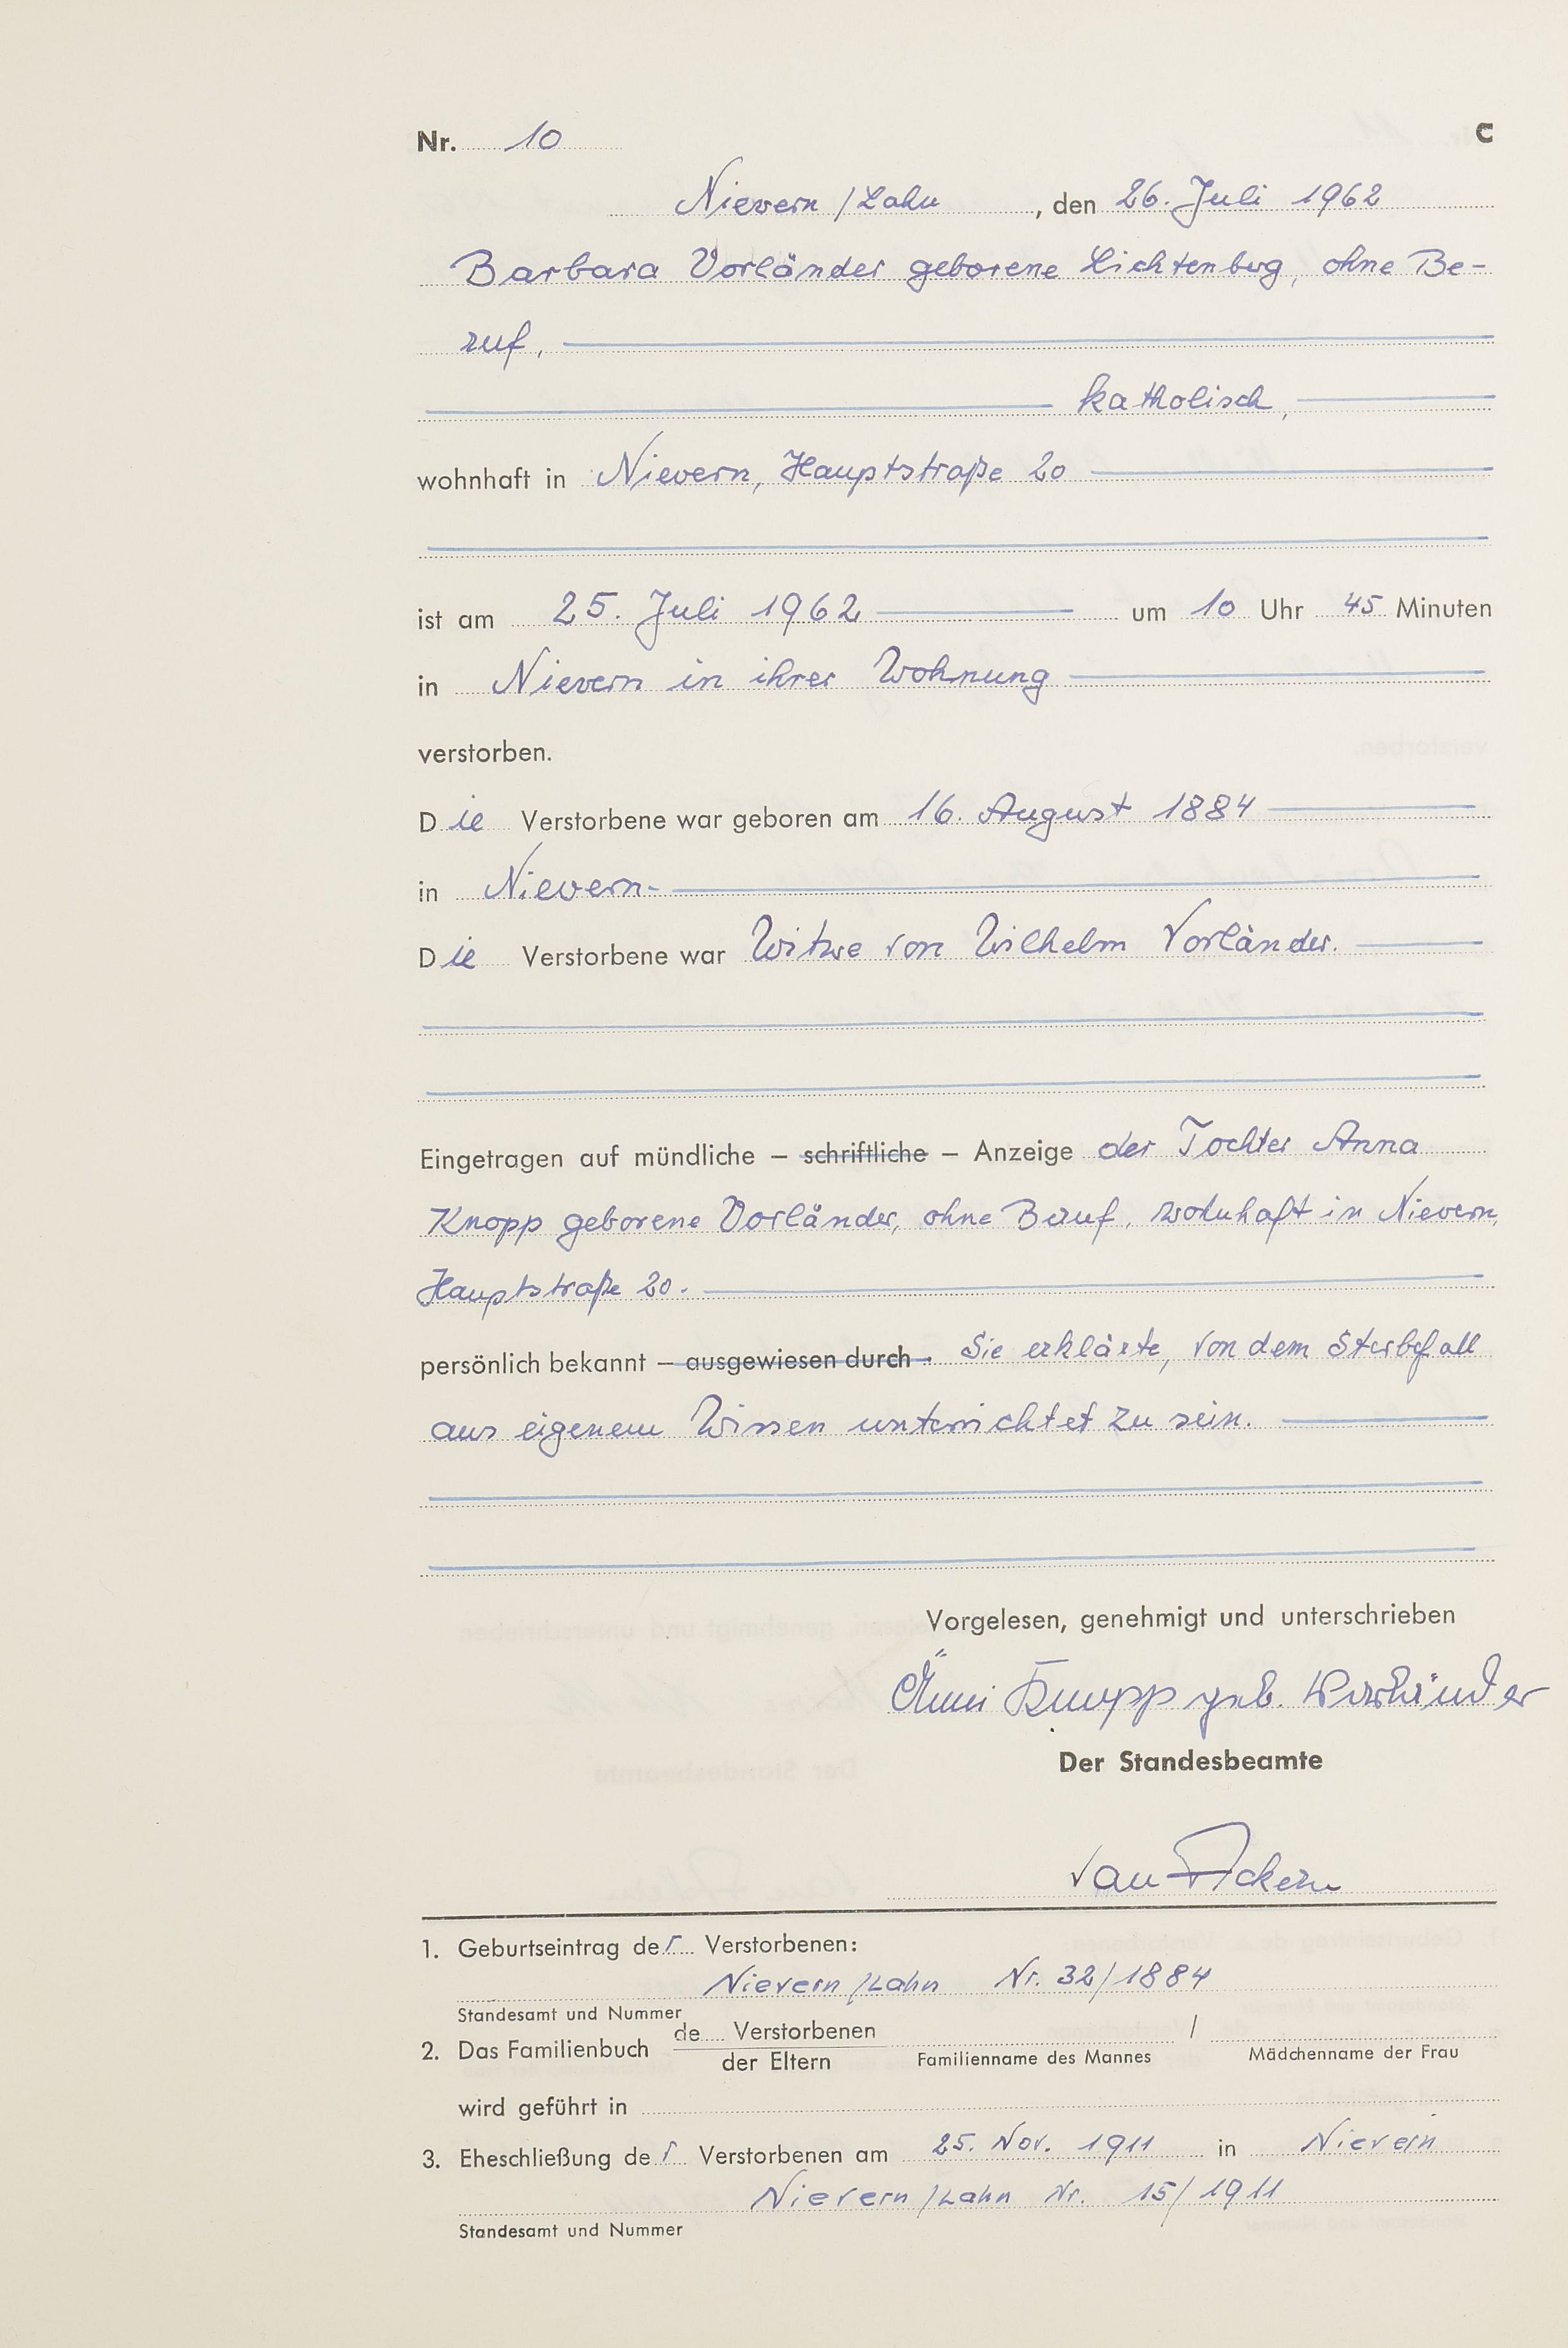 Nr. 10 C
Nievern / Lahn, den 26. Juli 1962
Barbara Vorländer geborene Lichtenberg, ohne Be-
ruf,
katholisch,
wohnhaft in Nievern, Hauptstraße 20
ist am 25. Juli 1962 um 10 Uhr 45 Minuten
in Nievern in ihrer Wohnung
verstorben.
Die Verstorbene war geboren am 16. August 1884
in Nievern-
Die Verstorbene war Witwe von Wilhelm Vorländer.
Eingetragen auf mündliche – schriftliche – Anzeige der Tochter Anna
Knopp geborene Vorländer, ohne Beruf, wohnhaft in Nievern,
Hauptstraße 20.
persönlich bekannt – ausgewiesen durch . Sie erklärte, von dem Sterbefall
aus eigenem Wissen unterrichtet zu sein.
Vorgelesen, genehmigt und unterschrieben
Änni Knopp geb. Vorländer
Der Standesbeamte
van Ackern
1. Geburtseintrag der Verstorbenen:
Nievern/Lahn Nr. 32/1884
Standesamt und Nummer
2. Das Familienbuch de Verstorbenen /
der Eltern Familienname des Mannes Mädchenname der Frau
wird geführt in
3. Eheschließung der Verstorbenen am 25. Nov. 1911 in Nievern
Nievern/Lahn Nr. 15/1911
Standesamt und Nummer